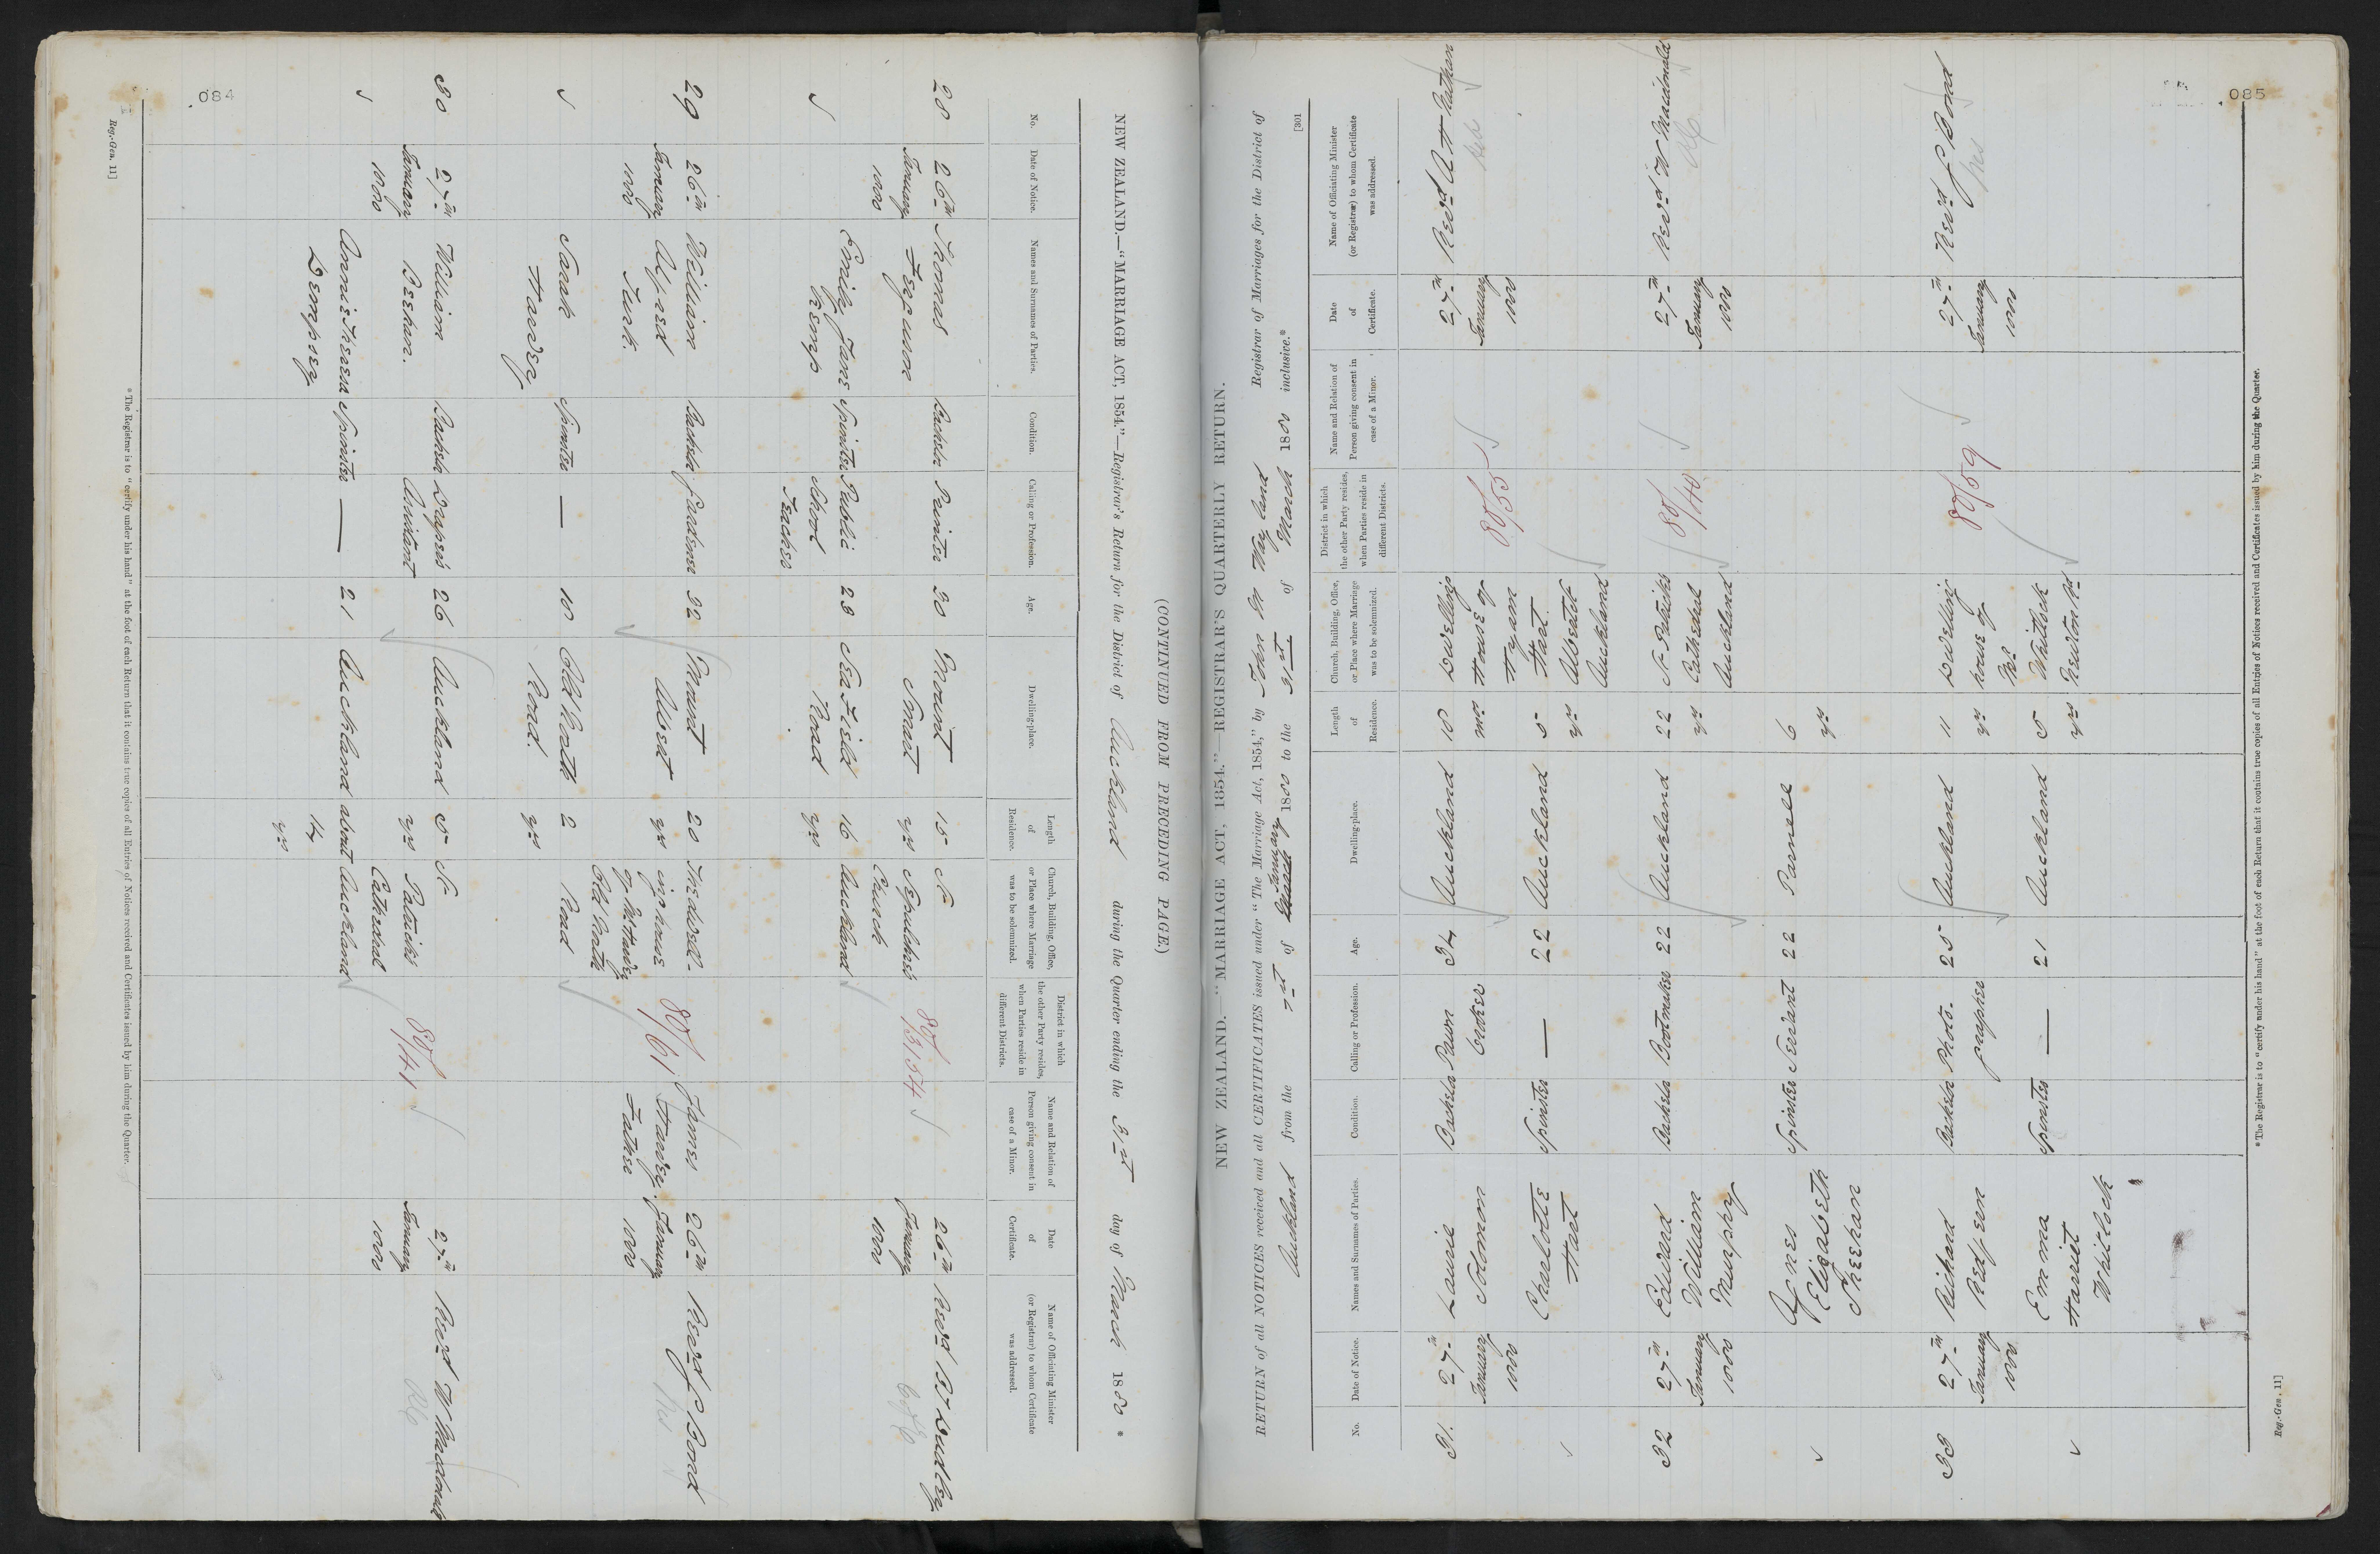 084
NEW ZEALAND.—"MARRIAGE ACT, 1854."—Registrar's Return for the District of Auckland during the Quarter ending the 31st day of March 1880 *
(CONTINUED FROM PRECEDING PAGE.)
No.
Date of Notice.
Names and Surnames of Parties.
Condition.
Calling or Profession.
Age.
Dwelling-place.
Length of Residence.
Church, Building, Office, or Place where Marriage was to be solemnized.
District in which the other Party resides, when Parties reside in different Districts.
Name and Relation of Person giving consent in case of a Minor.
Date of Certificate.
Name of Officiating Minister (or Registrar) to whom Certificate was addressed.
28 26th January 1880 Thomas Ferguson Bachelor Painter 30 Mount Smart 15 yrs St Sepulchres Church Auckland 26th January 1880 Revd B T Dudley
Emily Jane Kemp Spinster Public School Teacher 23 Seafield Road 16 yrs
29 26th January 1880 William Alfred Turk. Bachelor Gardener 32 Mount Albert 20 yrs The dwelling house of Mr Hawdey Old North Road 80/61 James Hawdey. Father 26th January 1880 Revd J S Bond
Sarah Hawdey Spinster — 18 Old North Road. 2 yrs
30 27th January 1880 William Beehan. Bachelor Drapers Assistant 26 Auckland 5 yrs St Patricks Cathedral Auckland 80/41 27th January 1880 Revd W Macdonald RC
Annie Theresa Dempsey Spinster — 21 Auckland about 14 yrs
* The Registrar is to "certify under his hand" at the foot of each Return that it contains true copies of all Entries of Notices received and Certificates issued by him during the Quarter.
Reg.-Gen. 11]
085
[301
NEW ZEALAND.—"MARRIAGE ACT, 1854."—REGISTRAR'S QUARTERLY RETURN.
RETURN of all NOTICES received and all CERTIFICATES issued under "The Marriage Act, 1854," by Registrar of Marriages for the District of
Auckland from the 1st of January 1880 to the 31st of March 1880 inclusive.*
No.
Date of Notice.
Names and Surnames of Parties.
Condition.
Calling or Profession.
Age.
Dwelling-place.
Length of Residence.
Church, Building, Office, or Place where Marriage was to be solemnized.
District in which the other Party resides, when Parties reside in different Districts.
Name and Relation of Person giving consent in case of a Minor.
Date of Certificate.
Name of Officiating Minister (or Registrar) to whom Certificate was addressed.
31. 27th January 1880 Laurie Solomon Bachelor Pawn broker 34 Auckland 18 mos Dwelling House of Hyam Hart Albert St Auckland 80/55 27th January 1880 Revd A H Nathan
Charlotte Hart Spinster — 22 Auckland 5 yrs
32 27th January 1880 Edward William Murphy Bachelor Bootmaker 22 Auckland 22 yrs St Patricks Cathedral Auckland 80/40 27th January 1880 Revd W Macdonald RC
Agnes Elizabeth Sheehan Spinster Servant 22 Parnell 6 yrs
33 27th January 1880 Richard Redfern Bachelor Photographer 25 Auckland 11 yrs Dwelling house of Mr Whitlock Newton Rd 80/59 27th January 1880 Revd J S Bond
Emma Harriet Whitlock Spinster — 21 Auckland 5 yrs
* The Registrar is to "certify under his hand" at the foot of each Return that it contains true copies of all Entries of Notices received and Certificates issued by him during the Quarter.
Reg.-Gen. 11]